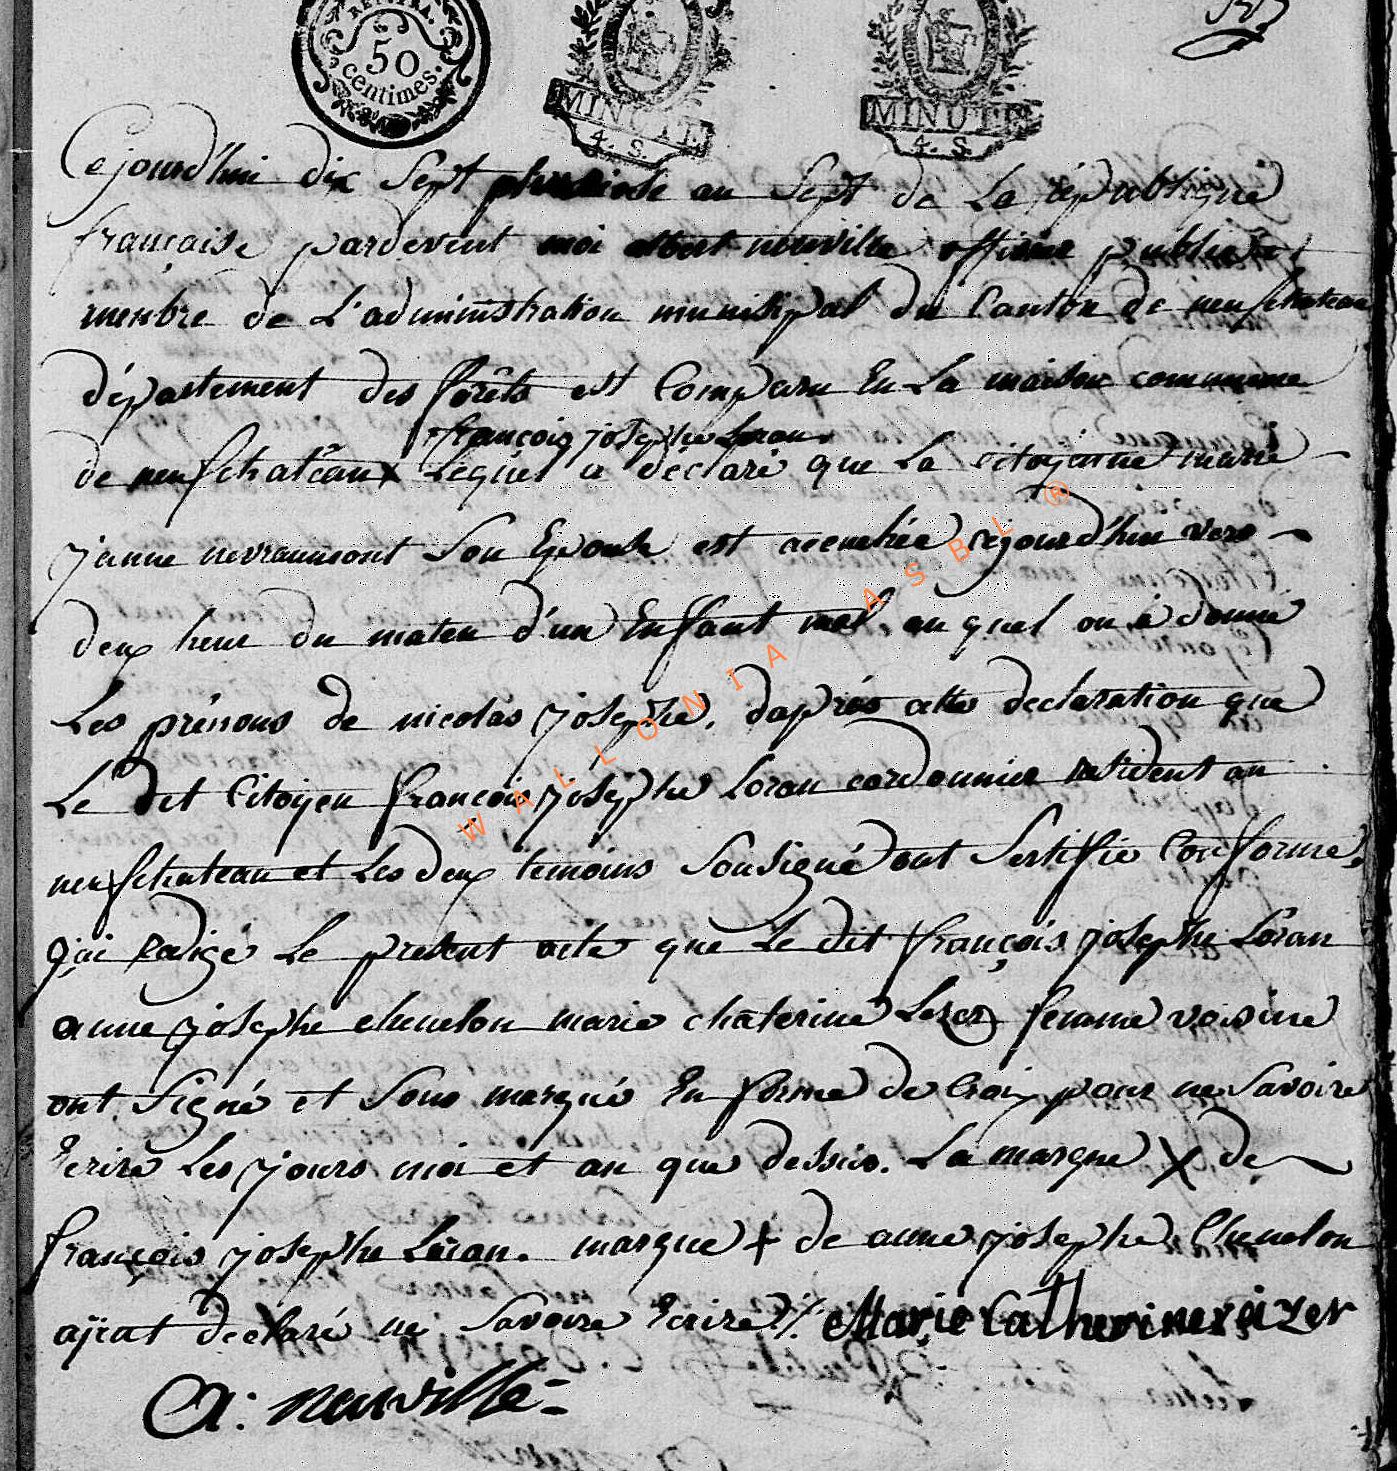 RE
50
centimes.
MINUTE
4. S.
MINUTE
4. S.
Cejourd'hui dix Sept pluviose an Sept de La république
française pardevent moi albert neuville officier public et
menbre de L'administration municipal du Canton de neufchateau
département des forêts est Comparu En La maison commune
françois josephe Loran
de neufchatêau Lequel a déclaré que La citoyenne marie
jeanne nevraumont Son Epouse est accouchée cejourd'hui vers
deux heur du maten d'un Enfant mal. au quel on à donné
Les prénoms de nicolas josephe, daprés cette declaration que
Le dit Citoyen françois josephe Loran cordonnier résident au
neufchateau et Les deux temoins Sousigné ont Sertifié Conforme,
j'ai Redigé Le present acte que Le dit françois josephe Loran
anne josephe chenelon marie chaterine femme voisine
ont Signé et Sous marqué En forme de Croix pour ne Savoire
Ecrire Les jours moi et an que dessus. La marque X de
françois josephe Loran. marque + de anne josephe Chenelon
ajeat déclaré ne Savoire Ecrire Marie Catherine
A: neuville
WALLONIA ASBL ®